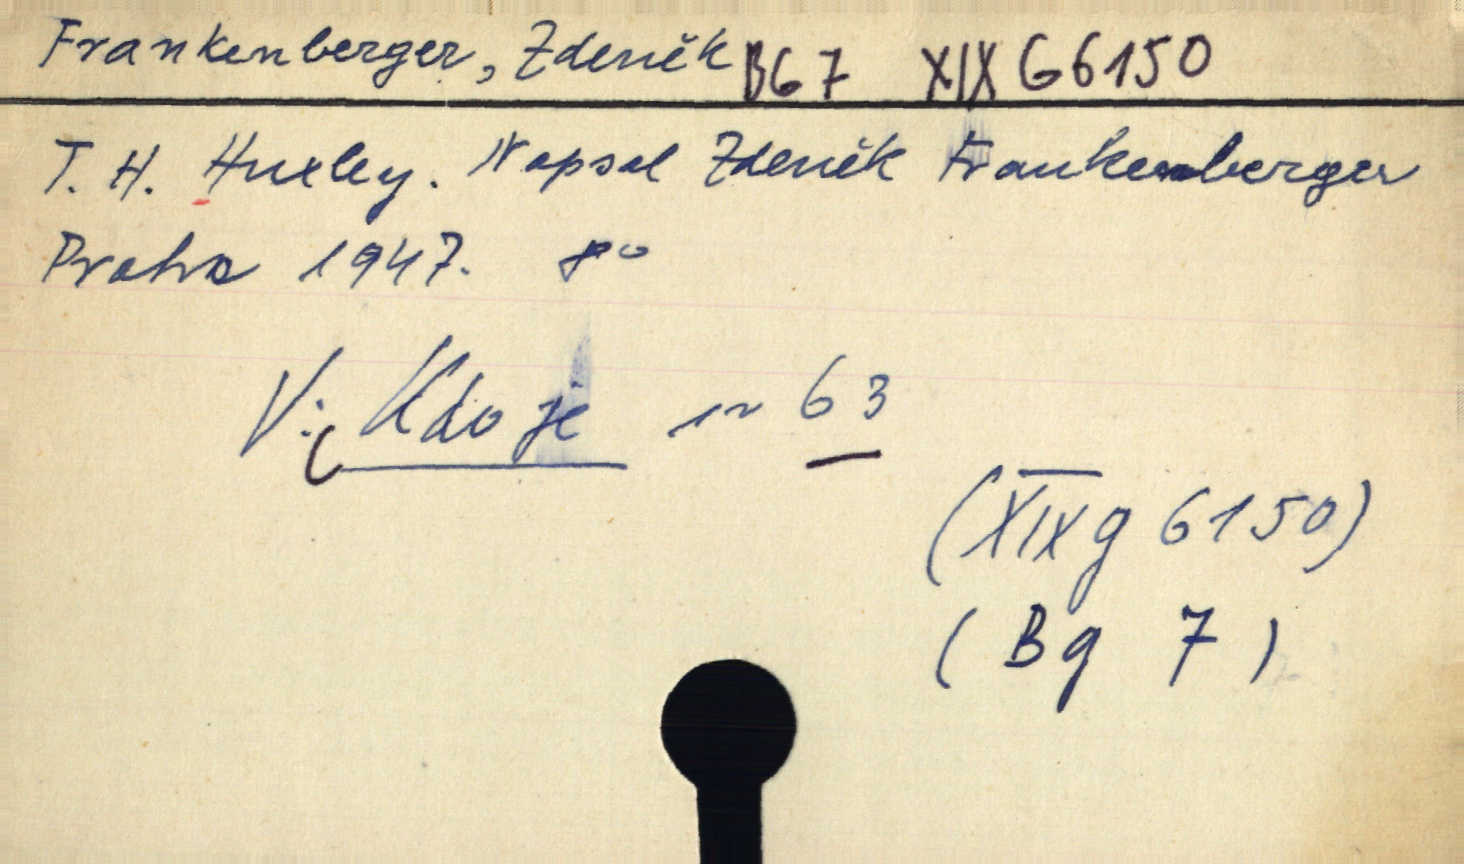 Frankenberger, Zdeněk BG7 XIX G6150
T. H. Huxley. Napsal Zdeněk Frankenberger
Praha 1947. 8°
V: Kdo je 63
(XIX g 6150)
(Bg 7)